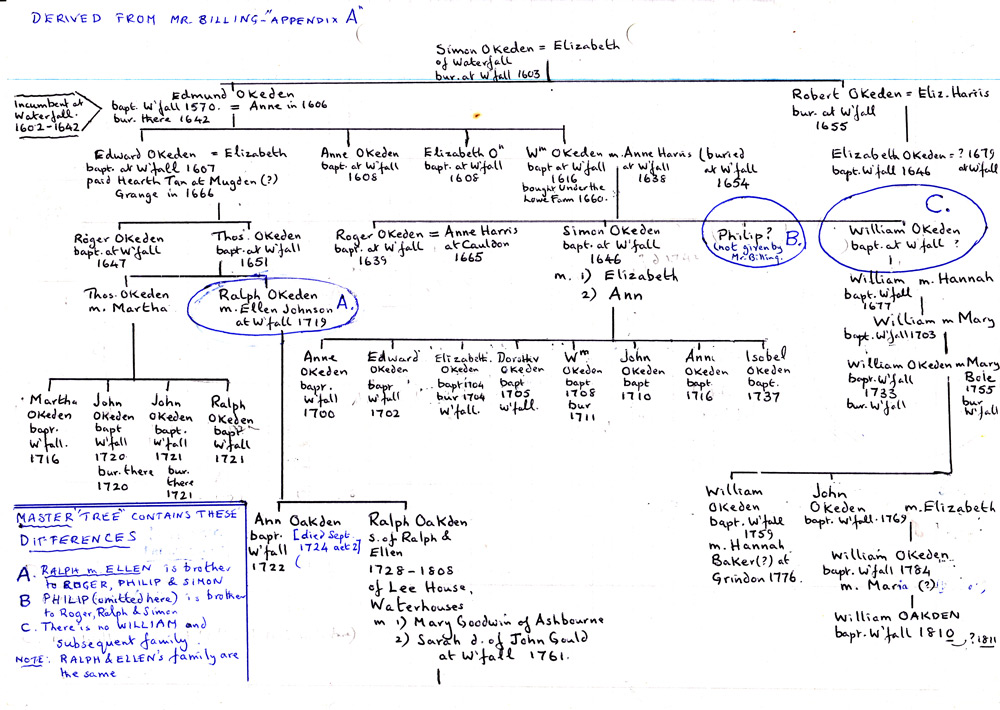 DERIVED FROM MR. BILLING-"APPENDIX A"
Simon OKeden = Elizabeth
of Waterfall
bur. at W'fall 1603
Incumbent at
Waterfall.
1602-1642
Edmund OKeden
bapt. W'fall 1570. = Anne in 1606
bur. there 1642
Robert OKeden = Eliz. Harris
bur. at W'fall
1655
Edward OKeden = Elizabeth
bapt. at W'fall 1607
paid Hearth Tax at Mugden (?)
Grange in 1666
Anne OKeden
bapt. at W'fall
1608
Elizabeth On
bapt. at W'fall
1608
Wm OKeden m. Anne Harris (buried
bapt. at W'fall at W'fall at W'fall
1616 1638 1654
bought Under the
Lowe Farm 1660.
Elizabeth OKeden = ? 1679
bapt. W'fall 1646 at W'fall
Roger OKeden
bapt. at W'fall
1647
Thos. OKeden
bapt. at W'fall
1651
Roger OKeden = Anne Harris
bapt. at W'fall at Cauldon
1639 1665
Simon OKeden
bapt. at W'fall
1646
m. 1) Elizabeth
2) Ann
Philip?
(not given by
Mr. Billing.
B.
C.
William OKeden
bapt. at W'fall ?
Thos. OKeden
m. Martha
Ralph OKeden
m. Ellen Johnson
at W'fall 1719
A.
William m. Hannah
bapt. W'fall
1677
William m Mary
bapt. W'fall 1703
William OKeden m Mary
bapt. W'fall Bole
1733 1755
bur. W'fall bur
W'fall
Anne
OKeden
bapt.
W'fall
1700
Edward
OKeden
bapt
W'fall
1702
Elizabeth.
OKeden
bapt 1704
bur 1704
W'fall.
Dorothy
OKeden
bapt
1705
W'fall.
Wm
OKeden
bapt
1708
bur
1711
John
OKeden
bapt
1710
Anni
OKeden
bapt
1716
Isobel
OKeden
bapt.
1737
Martha
OKeden
bapt.
W'fall.
1716
John
OKeden
bapt
W'fall
1720
bur. there
1720
John
OKeden
bapt.
W'fall
1721
bur.
there
1721
Ralph
OKeden
bapt
W'fall
1721
MASTER "TREE" CONTAINS THESE
DIFFERENCES
A. RALPH m ELLEN is brother
to ROGER, PHILIP & SIMON
B PHILIP (omitted here) is brother
to Roger, Ralph & Simon
C. There is no WILLIAM and
subsequent family.
NOTE: RALPH & ELLEN'S family are
the same
Ann Oakden
bapt. [died Sept.
W'fall 1724 aet 2]
1722 (
Ralph Oakden
s. of Ralph &
Ellen
1728-1808
of Lee House,
Waterhouses
m 1) Mary Goodwin of Ashbourne
2) Sarah d. of John Gould
at W'fall 1761.
William
OKeden
bapt. W'fall
1759
m. Hannah
Baker(?) at
Grindon 1776.
John
OKeden m. Elizabeth
bapt. W'fall. 1769
William OKeden
bapt. W'fall 1784
m. Maria (?)
William OAKDEN
bapt. W'fall 1810, ? 1811